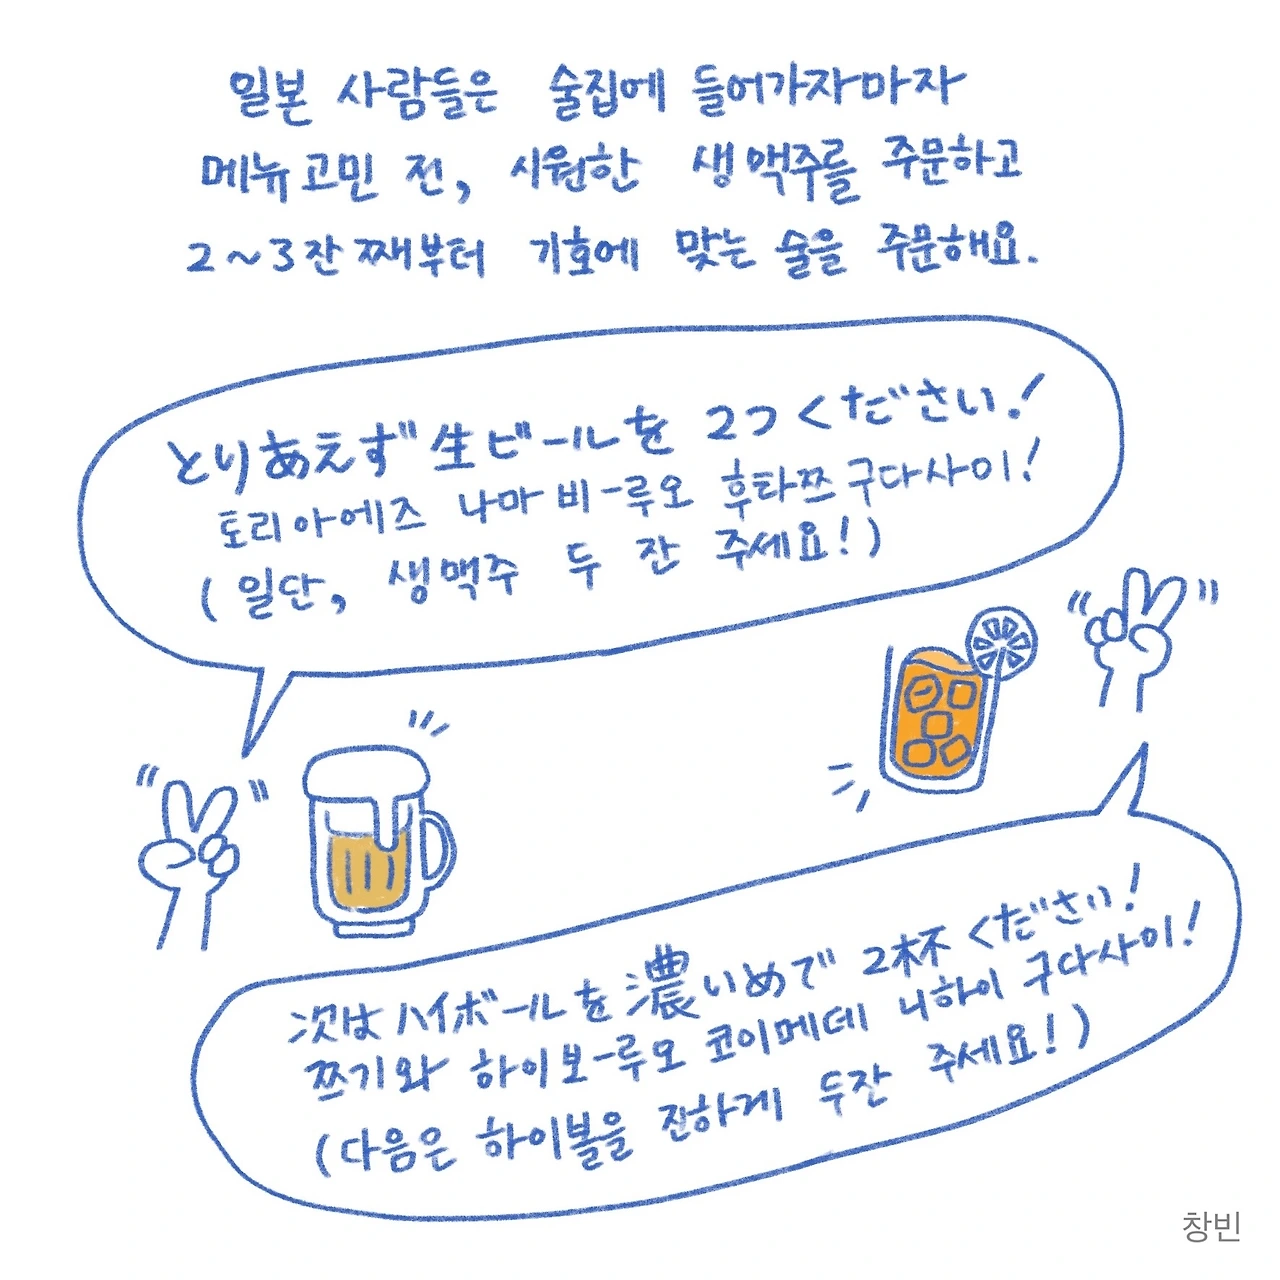 일본 사람들은 술집에 들어가자마자
메뉴 고민 전, 시원한 생맥주를 주문하고
2~3잔 째부터 기호에 맞는 술을 주문해요.
とりあえず生ビールを 2つください!
토리아에즈 나마비-루오 후타쯔구다사이!
(일단, 생맥주 두 잔 주세요!)
次はハイボールを濃いめで 2杯ください!
쯔기와 하이보-루오 코이메데 니하이 구다사이!
(다음은 하이볼을 진하게 두잔 주세요!)
창빈